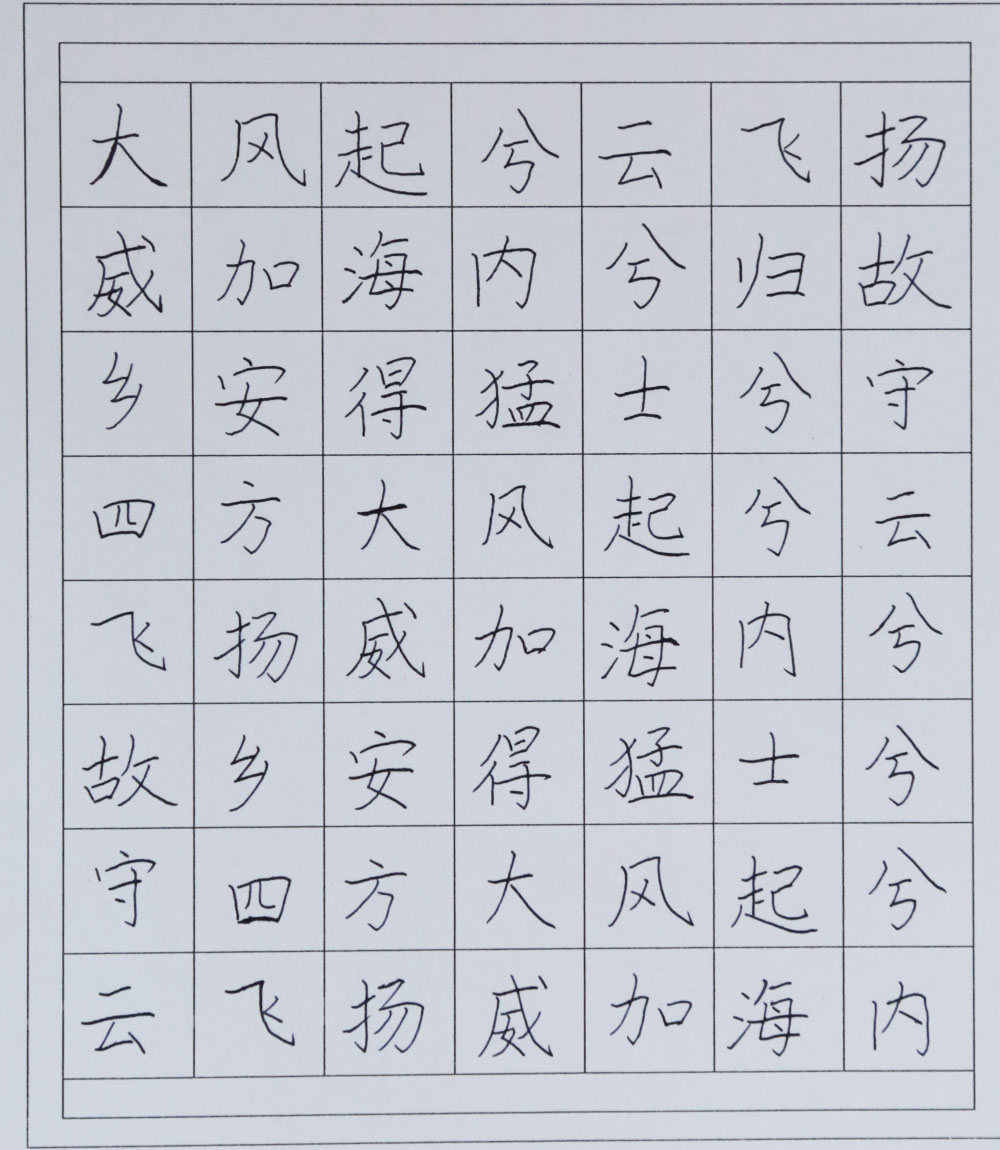 大风起兮云飞扬
威加海内兮归故
乡安得猛士兮守
四方大风起兮云
飞扬威加海内兮
故乡安得猛士兮
守四方大风起兮
云飞扬威加海内